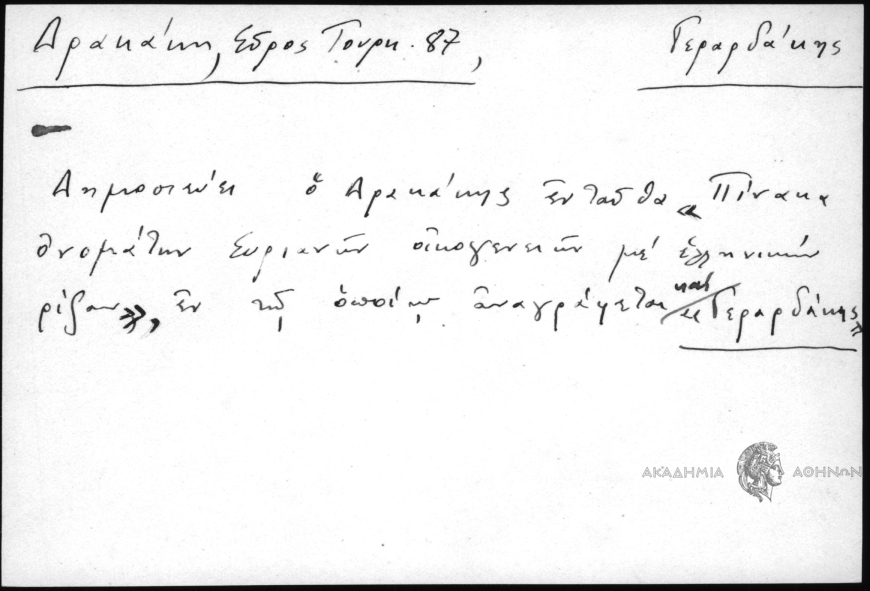 Δρακάκη, Σύρος Τουρκ. 87, Γεραρδάκης
Δημοσιεύει ὁ Δρακάκης ἐνταῦθα «Πίνακα
ὀνομάτων Συριανῶν οἰκογενειῶν μέ ἑλληνικήν
ρίζαν», ἐν τῷ ὁποίῳ ἀναγράφεται καί «Γεραρδάκης»
ΑΚΑΔΗΜΙΑ ΑΘΗΝΩΝ